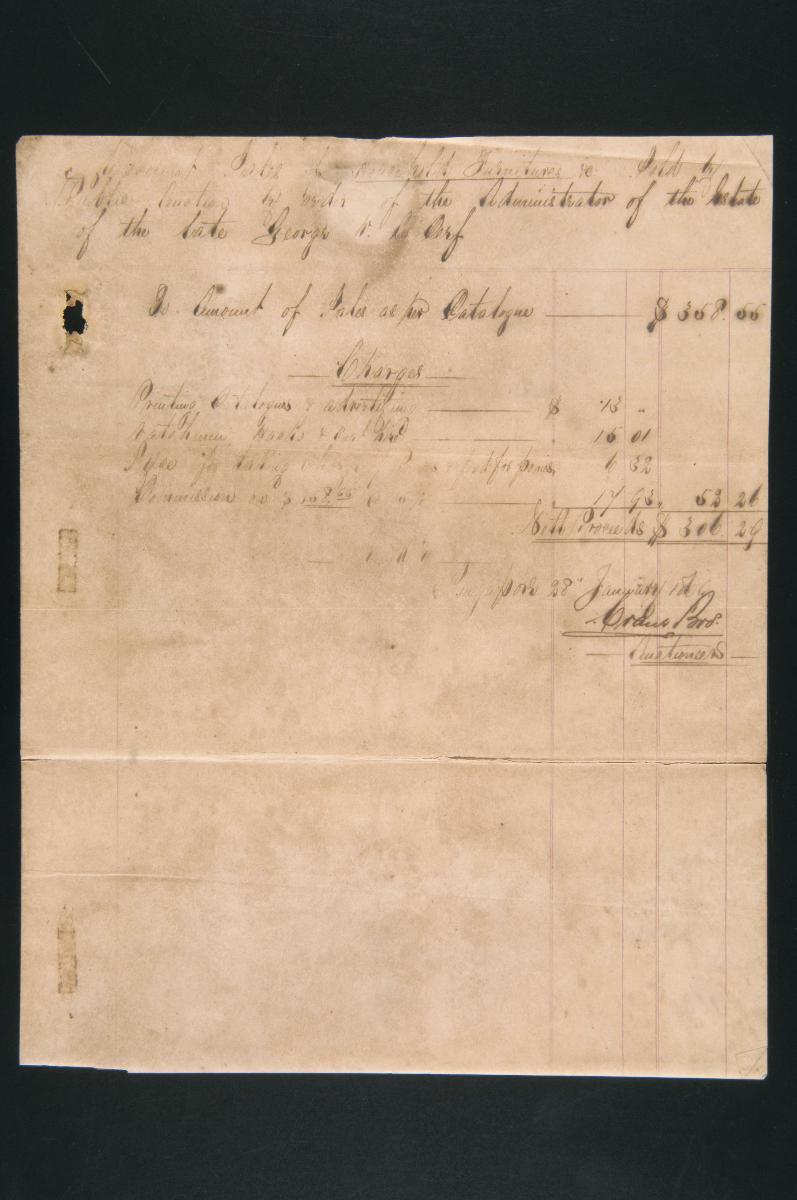 Account Sales of Household Furnitures &c. Sold by
Public Auction by order of the Administrator of the Estate
of the late George
To Amount of Sales as per Catalogue $ 358. 55
Charges
Printing Catalogues & advertising $ 13 "
Watchmen, & 15 01
for taking 6 32
Commission on $ 358.55 @ 5 % 17 93 " 52 26
Nett Proceeds $ 306 29
Singapore 28" January
Crane Bros.
Auctioneers